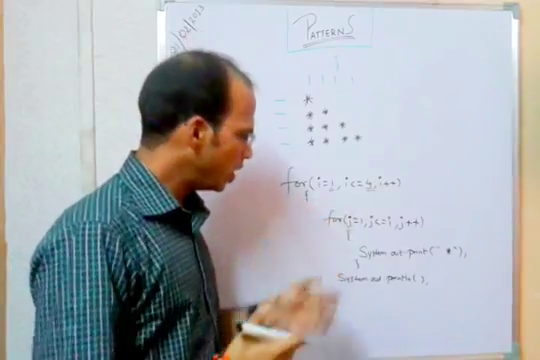 /02/2013
PATTERNS
*
* *
* * *
* * * *
for(i=1, i<=4, i++)
{
for(j=1, j<=i, j++)
{
System.out.print(" *");
}
System.out.println( );